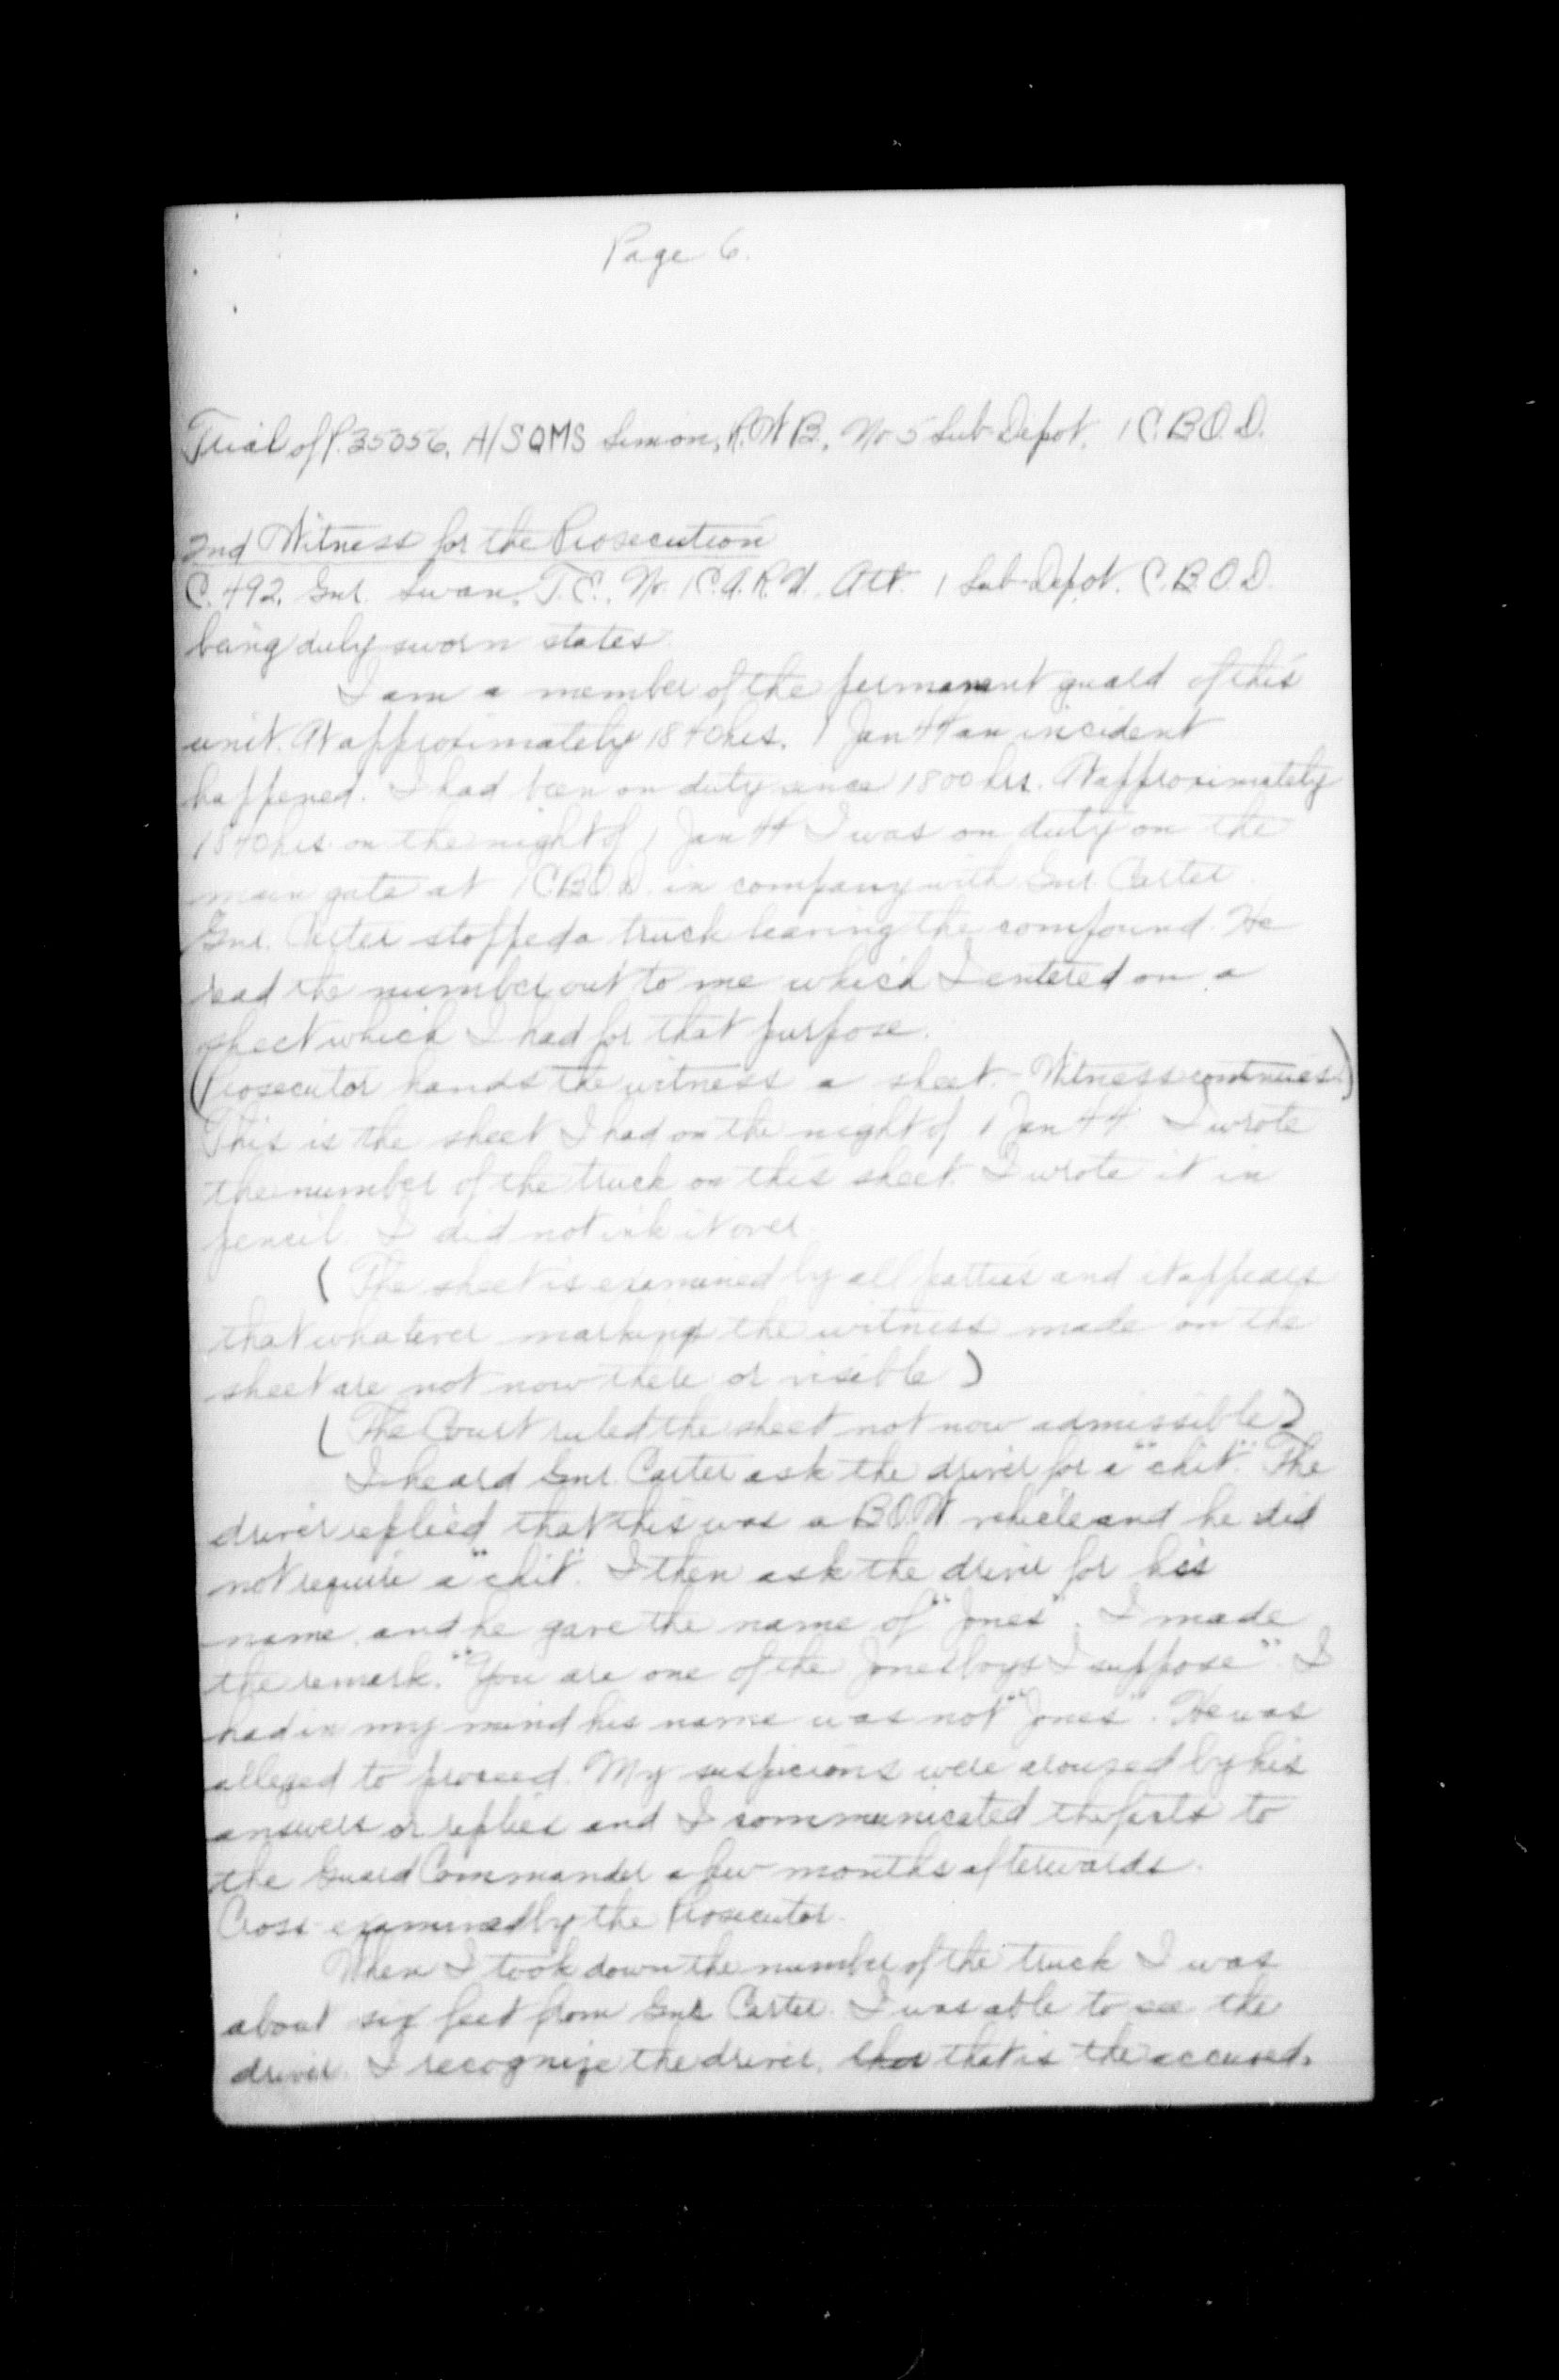 Page 6.
Trial of P.35056, A/SQMS Simon, R.W.B., No 5 Sub-Depot, 1 C.B.O.D.
2nd Witness for the Prosecution
C. 492, Gnr. Swan, T.C., No. 1 C.A.R.U. Att. 1 Sub-Depot. C.B.O.D.
being duly sworn states
I am a member of the permanent guard of this
unit. At approximately 1840 hrs. 1 Jan 44 an incident
happened. I had been on duty since 1800 hrs. At approximately
1840 hrs on the night of 1 Jan 44 I was on duty on the
main gate at 1 C.B.O.D. in company with Gnr. Carter.
Gnr. Carter stopped a truck leaving the compound. He
read the number out to me which I entered on a
sheet which I had for that purpose.
(Prosecutor hands the witness a sheet. - Witness continues.)
This is the sheet I had on the night of 1 Jan 44. I wrote
the number of the truck on this sheet. I wrote it in
pencil. I did not ink it over.
(The sheet is examined by all parties and it appears
that whatever markings the witness made on the
sheet are not now there or visible)
(The Court ruled the sheet not now admissible)
I heard Gnr. Carter ask the driver for a "chit". The
driver replied that this was a B.O.W vehicle and he did
not require a "chit". I then ask the driver for his
name and he gave the name of "Jones". I made
the remark, "You are one of the Jones boys I suppose". I
had in my mind his name was not "Jones". He was
alleged to proceed. My suspicions were aroused by his
answers or replies and I communicated the facts to
the Guard Commander a few months afterwards.
Cross-examined by the Prosecutor.
When I took down the number of the truck I was
about six feet from Gnr Carter. I was able to see the
driver. I recognize the driver, that is the accused.